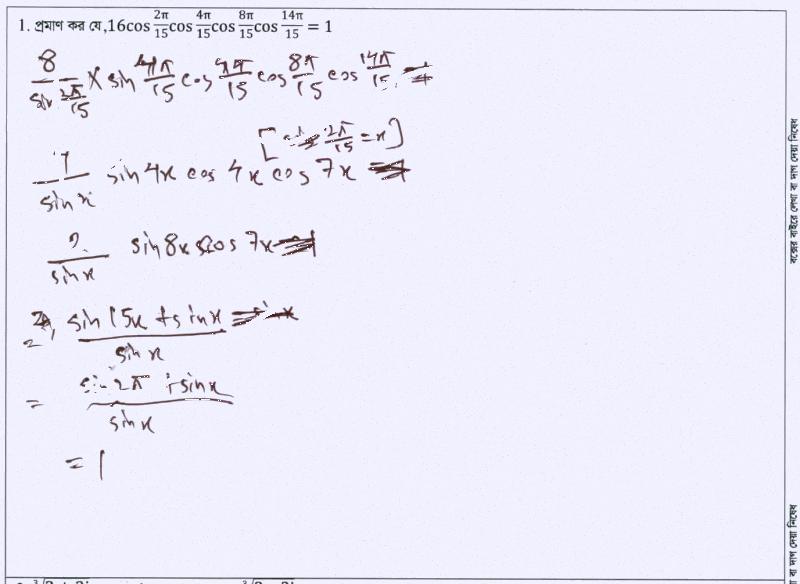 1. প্রমাণ কর যে,16cos 2π/15 cos 4π/15 cos 8π/15 cos 14π/15 = 1
8/sin 2π/15 × sin 4π/15 cos 4π/15 cos 8π/15 cos 14π/15
[ 2π/15 = x]
/sin x sin 4x cos 4x cos 7x
2/sin x sin 8x cos 7x
= sin 15x + sin x/sin x
= sin 2π + sin x/sin x
= 1
বক্সের বাইরে লেখা বা দাগ দেয়া নিষেধ
বা দাগ দেয়া নিষেধ